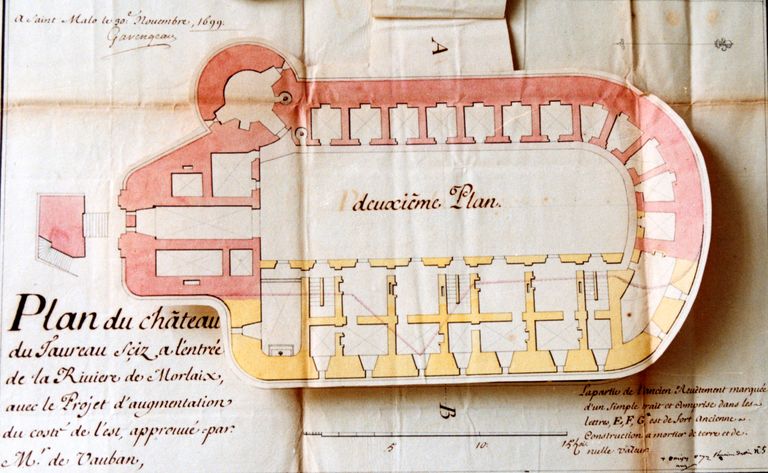 A Saint Malo le 30.e Novembre, 1699.
Garengeau
A
deuxième Plan.
Plan du château
du Taureau sçiz a l'entrée
de la Riviere de Morlaix,
avec le Projet d'augmentation
du costé de l'est, approuvé par
M.r de Vauban,
B
5
10
15
La partie de l'ancien Revêtement marquée
d'un simple trait et Comprise dans les
lettres, E, F, G, est de fort ancienne
Construction a mortier de terre et de
nulle valeur
n.5